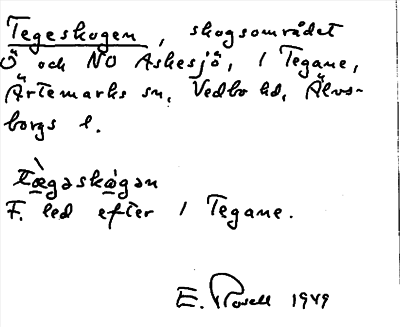 Tegeskogen, skogsområdet
Ö och NO Askesjö, 1 Tegane,
Ärtemarks sn, Vedbo hd, Älvs-
borgs l.
tὲgəskògən
F. led efter 1 Tegane.
E. Rosell 1949